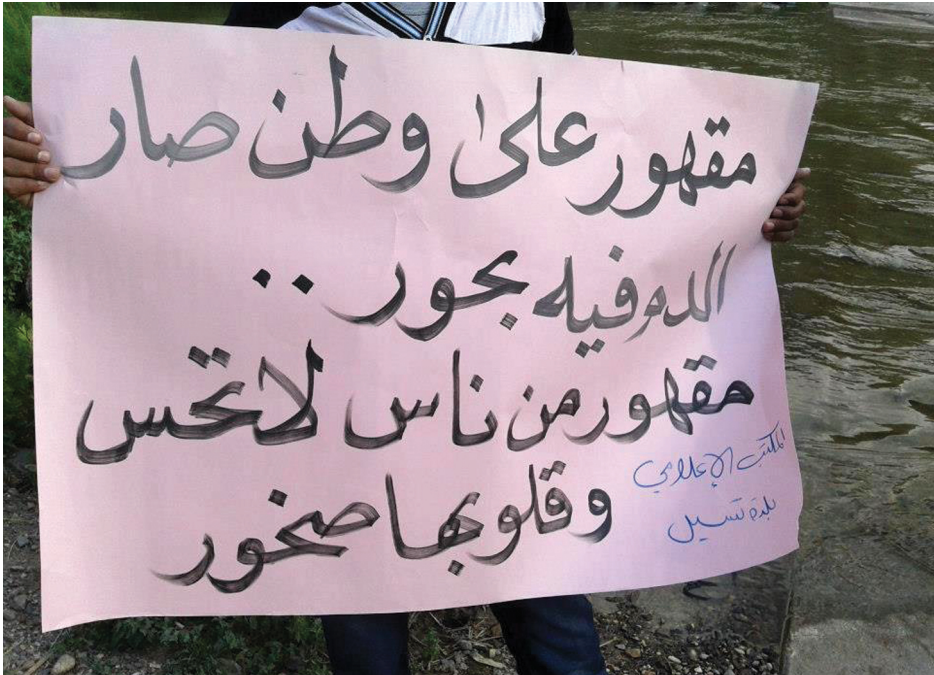 مقهور على وطن صار
الدم فيه بحور ..
مقهور من ناس لا تحس
وقلوبها صخور
المكتب الإعلامي
بلدة تسيل